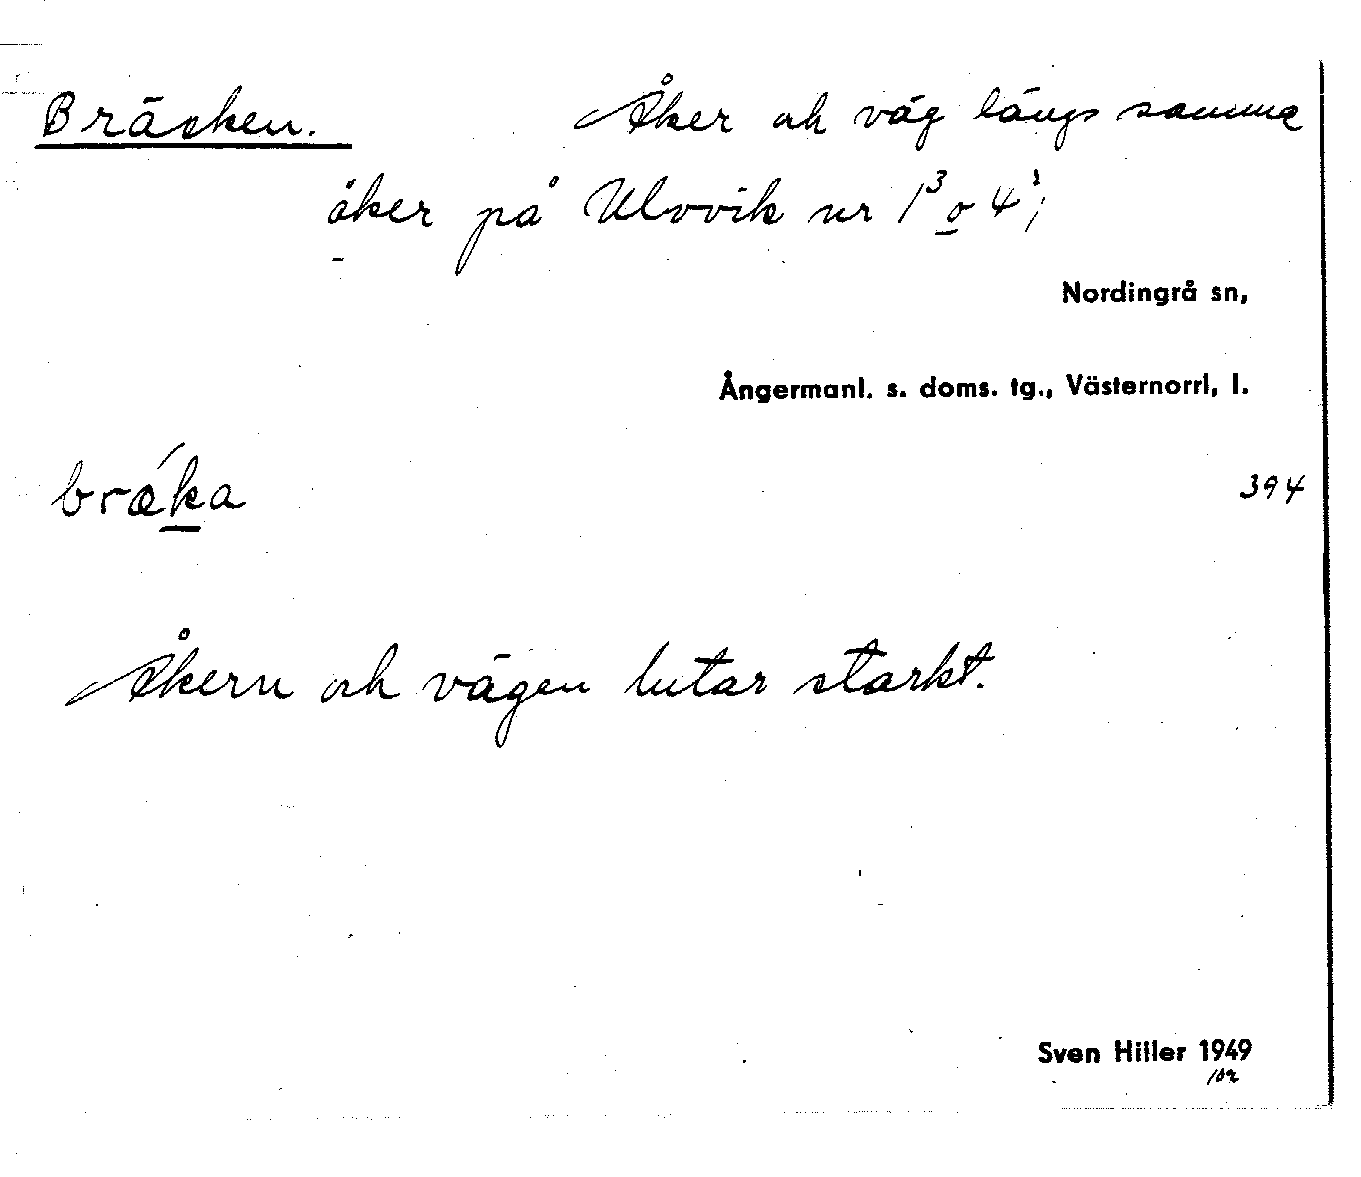 Bräcken. Åker och väg längs samma
åker på Ulvvik nr 1³ o 4¹;
Nordingrå sn,
Ångermanl. s. doms. tg., Västernorrl, l.
bræ´ka
394
Åkern och vägen lutar starkt.
Sven Hiller 1949